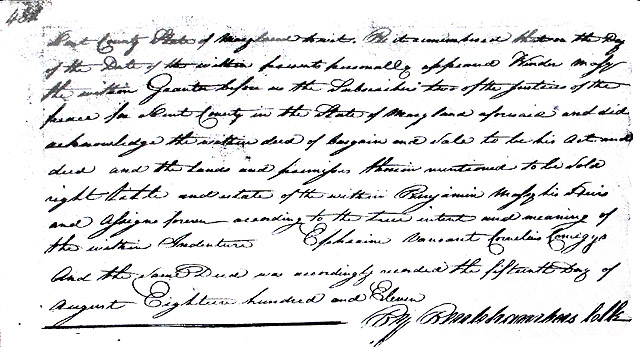 Kent County State of Maryland to wit. Be it remembered that on the Day
of the Date of the within presents personally appeared Kinder Massy
the within Grantor before us the Subscribers two of the justices of the
peace for Kent County in the State of Maryland aforesaid and did
acknowledge the within deed of bargain and Sale to be his Act and
deed and the lands and premises therein mentioned to be Sold
right tittle and estate of the within Benjamin Massy his Heirs
and Assigns forever according to the true intent and meaning of
the within Indenture Ephraim Vansant Cornelius Comegys
And the Same Deed was accordingly recorded the fifteenth Day of
August Eighteen hundred and Eleven
By Clk